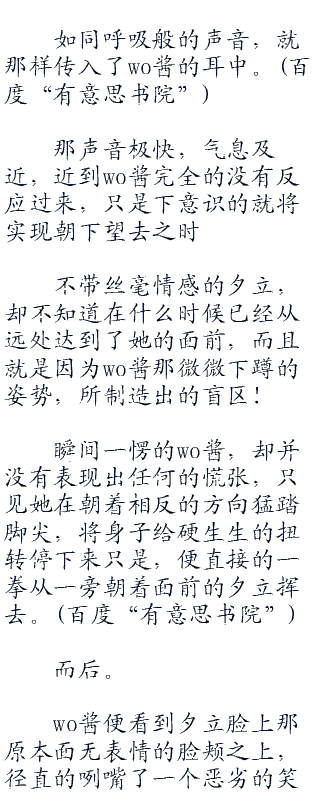 如同呼吸般的声音，就
那样传入了wo酱的耳中。(百
度“有意思书院”)
那声音极快，气息及
近，近到wo酱完全的没有反
应过来，只是下意识的就将
实现朝下望去之时
不带丝毫情感的夕立，
却不知道在什么时候已经从
远处达到了她的面前，而且
就是因为wo酱那微微下蹲的
姿势，所制造出的盲区！
瞬间一愣的wo酱，却并
没有表现出任何的慌张，只
见她在朝着相反的方向猛踏
脚尖，将身子给硬生生的扭
转停下来只是，便直接的一
拳从一旁朝着面前的夕立挥
去。(百度“有意思书院”)
而后。
wo酱便看到夕立脸上那
原本面无表情的脸颊之上，
径直的咧嘴了一个恶劣的笑